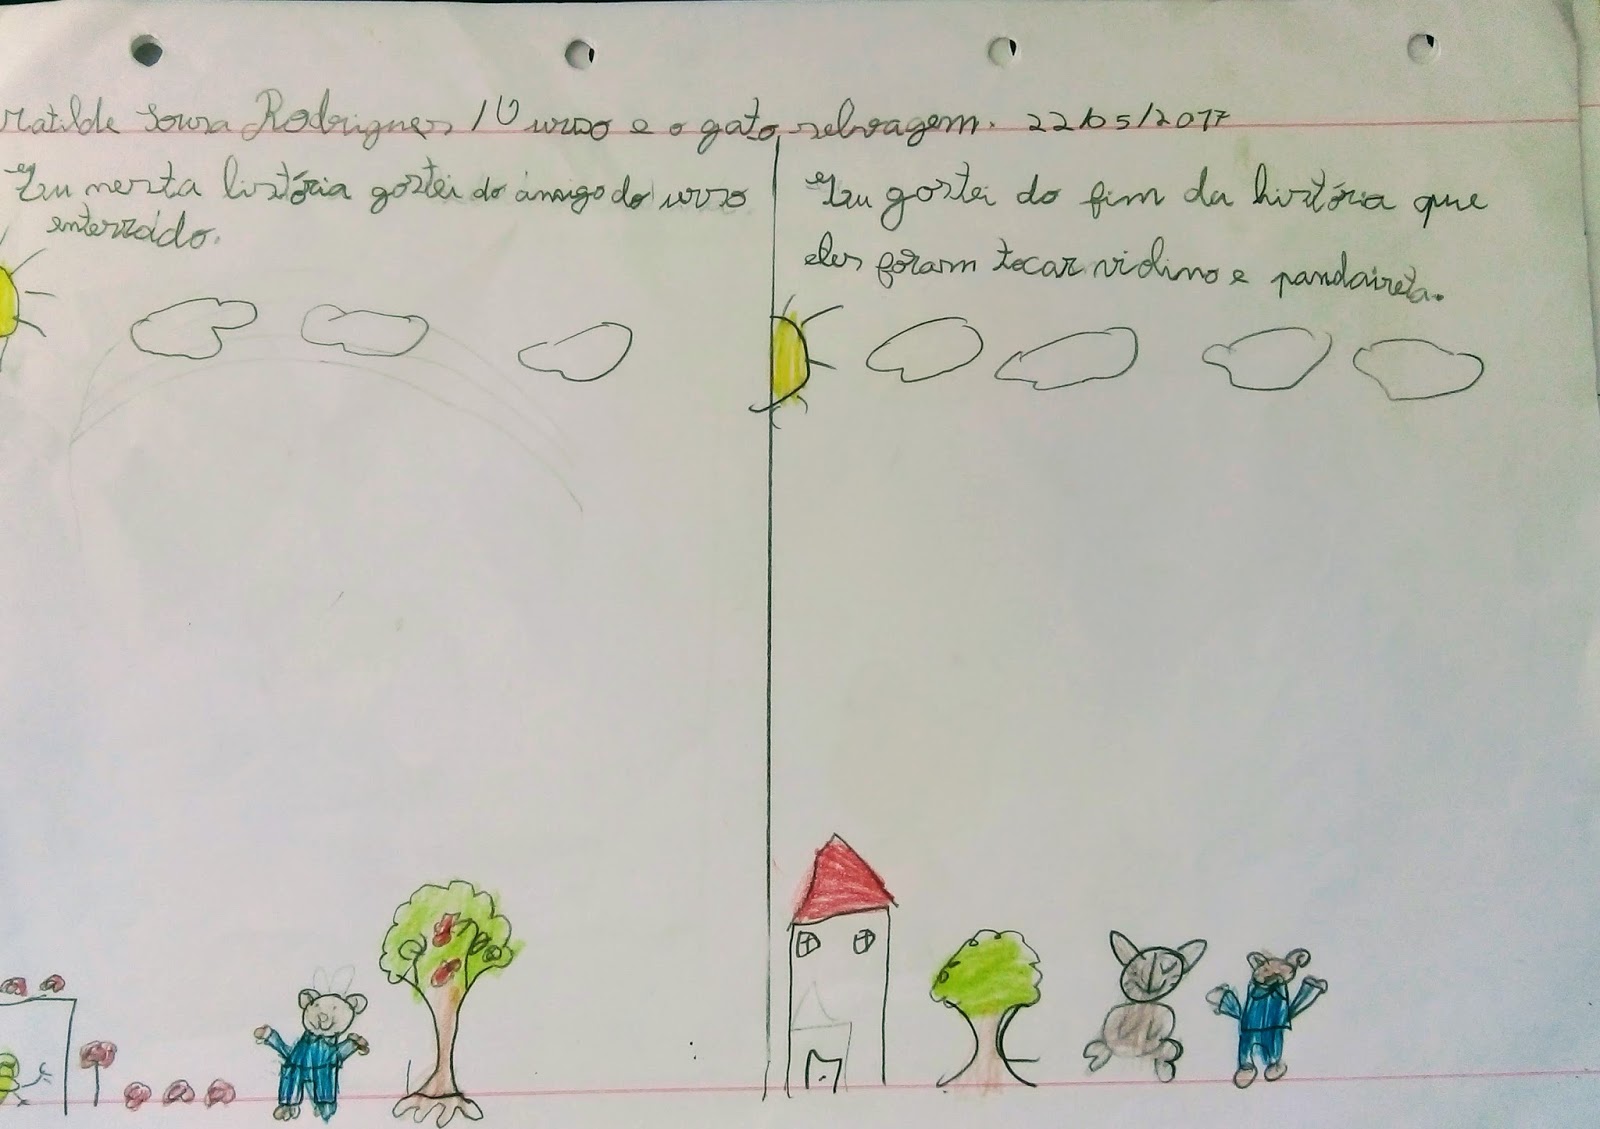 Matilde Sousa Rodrigues / O urso e o gato selvagem. 22/05/2017
Eu nesta história gostei do ámigo do urso
enterrádo.
Eu gostei do fim da história que
eles foram tocar violino e pandaireta.